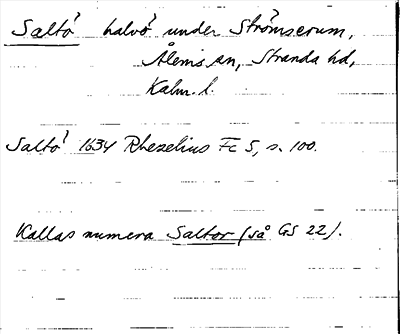 Saltö halvö under Strömserum,
Ålems sn, Stranda hd,
Kalm. l.
Saltö 1634 Rhezelius Fc 5, s. 100.
Kallas numera Saltor (så GS 22).